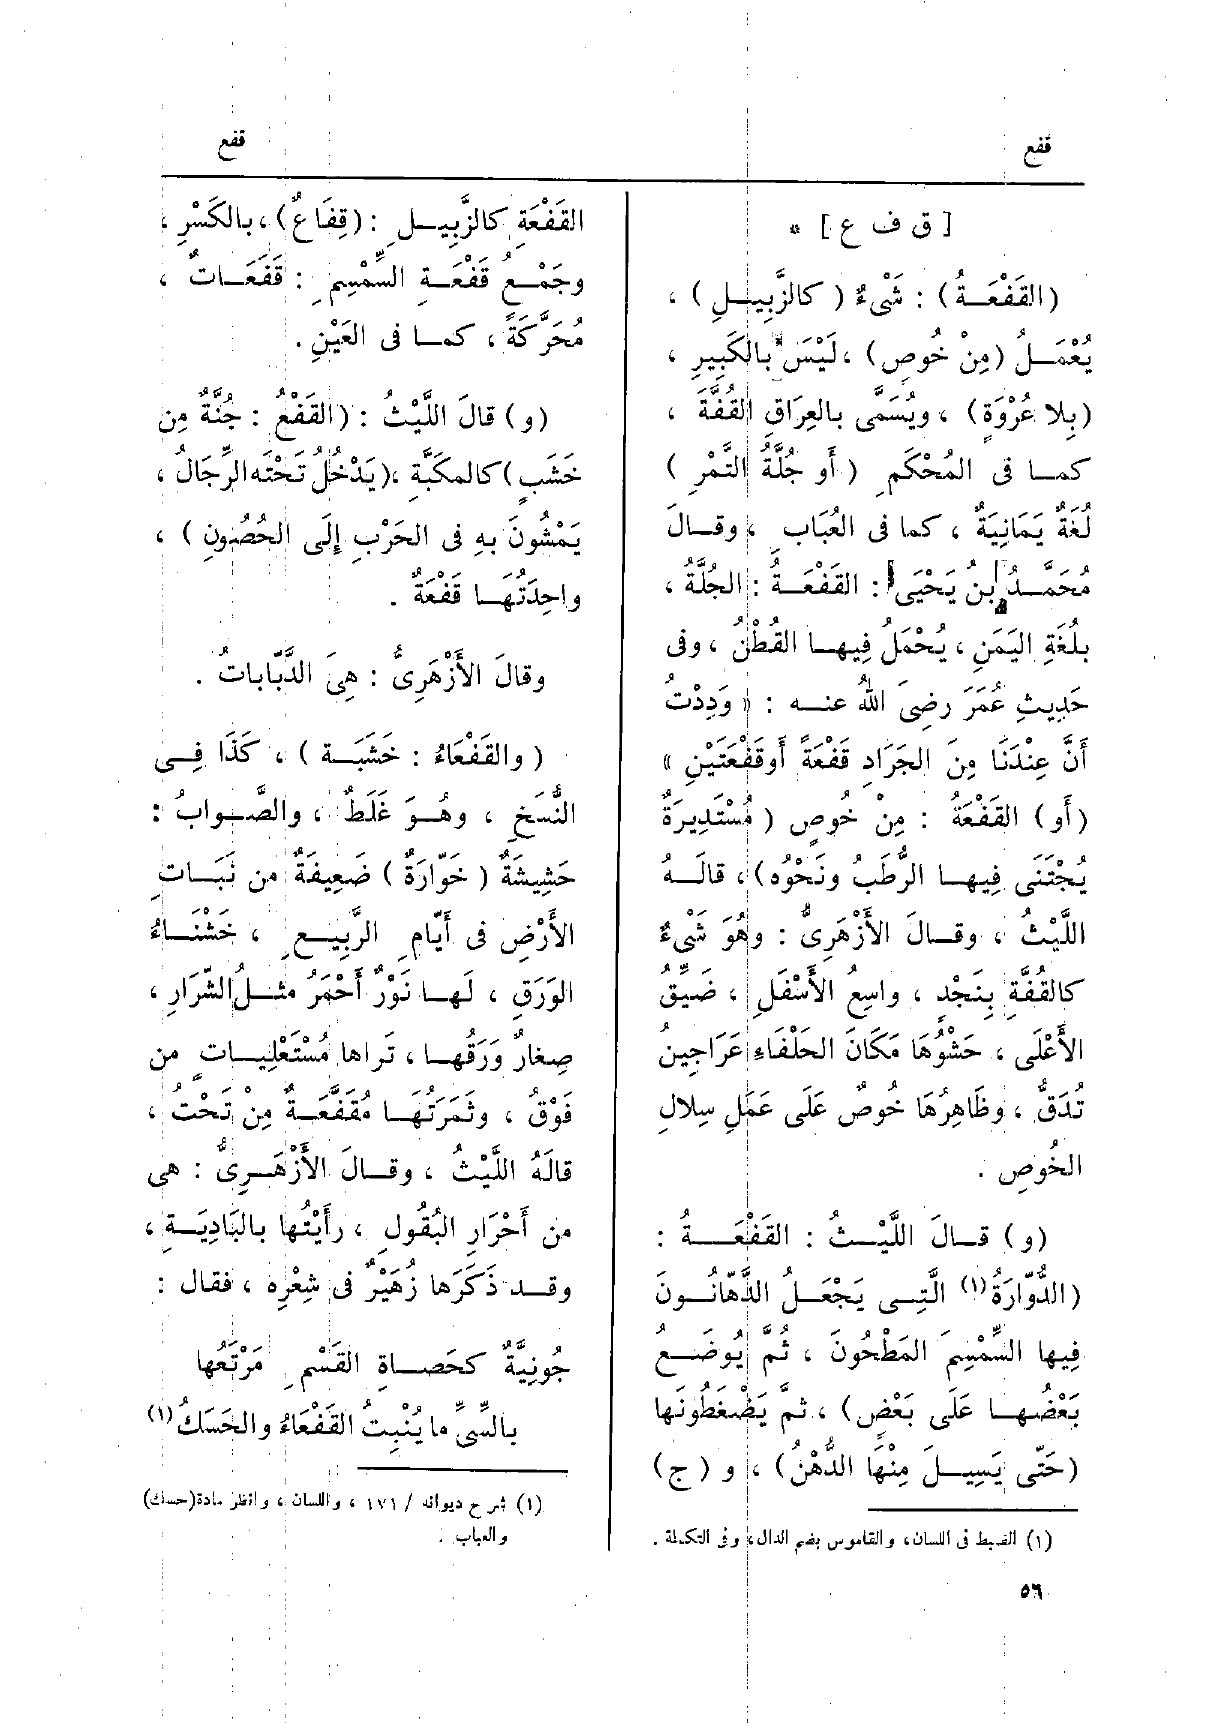 قفع
قفع
[ ق ف ع ] *
(القَفْعَـةُ) : شَىْءٌ (كالزَّبِيلِ) ،
يُعْمَلُ (مِنْ خُوصٍ) ، لَيْسَ بالكَبِيرِ ،
(بِلا عُرْوَةٍ) ، ويُسَمَّى بالعِرَاقِ القُفَّةَ ،
كمـا فى المُحْكَمِ (أَو جُلَّةُ التَّمْرِ)
لُغَةٌ يَمَانِيَةٌ ، كما فى العُبَابِ ، وقـالَ
مُحَمَّـدُ بنُ يَحْيَى : القَفْعَـةُ : الجُلَّةُ ،
بلُغَةِ اليَمَنِ ، يُحْمَلُ فِيهـا القُطْنُ ، وفى
حَدِيثِ عُمَرَ رضِىَ اللهُ عنـه : « وَدِدْتُ
أَنَّ عِنْدَنَا مِنَ الجَرَادِ قَفْعَةً أَوقَفْعَتَيْنِ »
(أَو) القَفْعَةُ : مِنْ خُوصٍ (مُسْتَدِيرَةٌ
يُجْتَنَى فِيهـا الرُّطَبُ ونَحْوُه) ، قالَـهُ
اللَّيْثُ ، وقـالَ الأَزْهَرِىُّ : وهُوَ شَىْءٌ
كالقُفَّةِ بِنَجْدٍ ، واسِعُ الأَسْفَلِ ، ضَيِّقُ
الأَعْلَى ، حَشْوُهَا مَكَانَ الحَلْفَاءِ عَرَاجِين
تُدَقُّ ، وظَاهِرُهَا خُوصٌ عَلَى عَمَلِ سِلالِ
الخُوصِ .
(و) قـالَ اللَّيْـثُ : القَفْعَـةُ :
(الدُّوّارَةُ(١) الَّتِـى يَجْعَـلُ الدَّهّانُـونَ
فِيها السِّمْسِمَ المَطْحُونَ ، ثُمَّ يُوضَـعُ
بَعْضُهـا عَلَى بَعْضٍ) ، ثمَّ يَضْغَطُونَها
(حَتّى يَسِيلَ مِنْهَا الدُّهْنُ) ، و (ج)
(١) الضبط فى اللسان ، والقاموس بضم الدال ، وفى التكملة .
٥٦
القَفْعَةِ كالزَّبِيـلِ : (قِفَاعٌ) ، بالكَسْرِ ،
وجَمْـعُ قَفْعَـةِ السِّمْسِمِ : قَفَعَـاتٌ ،
مُحَرَّكَةً ، كمـا فى العَيْنِ .
(و) قالَ اللَّيْثُ : (القَفْعُ : جُنَّةٌ مِن
خَشَبٍ) كالمكَبَّةِ ، (يَدْخُلُ تَحْتَه الرِّجَالُ ،
يَمْشُونَ بِهِ فى الحَرْبِ إِلَى الحُصُونِ) ،
واحِدَتُهَـا قَفْعَةٌ .
وقالَ الأَزْهَرِىُّ : هِىَ الدَّبّاباتُ .
(والقَفْعَاءُ : خَشَبَـة) ، كَذَا فِـى
النُّسَخِ ، وهُـوَ غَلَطٌ ، والصَّـوابُ :
حَشِيشَةٌ (خَوّارَةٌ) ضَعِيفَةٌ من نَبَـاتِ
الأَرْضِ فى أَيّامِ الرَّبِيـعِ ، خَشْنَـاءُ
الوَرَقِ ، لَهـا نَوْرٌ أَحْمَرُ مثـلُ الشَّرَارِ ،
صِغارٌ وَرَقُهـا ، تَراها مُسْتَعْلِيـاتٍ من
فَوْقُ ، وثَمَرَتُهَـا مُقَفَّعَـةٌ مِنْ تَحْتُ ،
قالَهُ اللَّيْثُ ، وقـالَ الأَزْهَـرِىُّ : هى
من أَحْرَارِ البُقُولِ ، رأَيْتُها بالبَادِيَـةِ ،
وقـد ذَكَرَها زُهَيْرٌ فى شِعْرِه ، فقال :
جُونِيَّةٌ كحَصـاةِ القَسْمِ مَرْتَعُها
بالسِّىِّ ما يُنْبِتُ القَفْعَاءُ والحَسَكُ(١)
(١) شرح ديوانه / ١٧١ ، واللسان ، وانظر مادة (حسك)
والعباب .